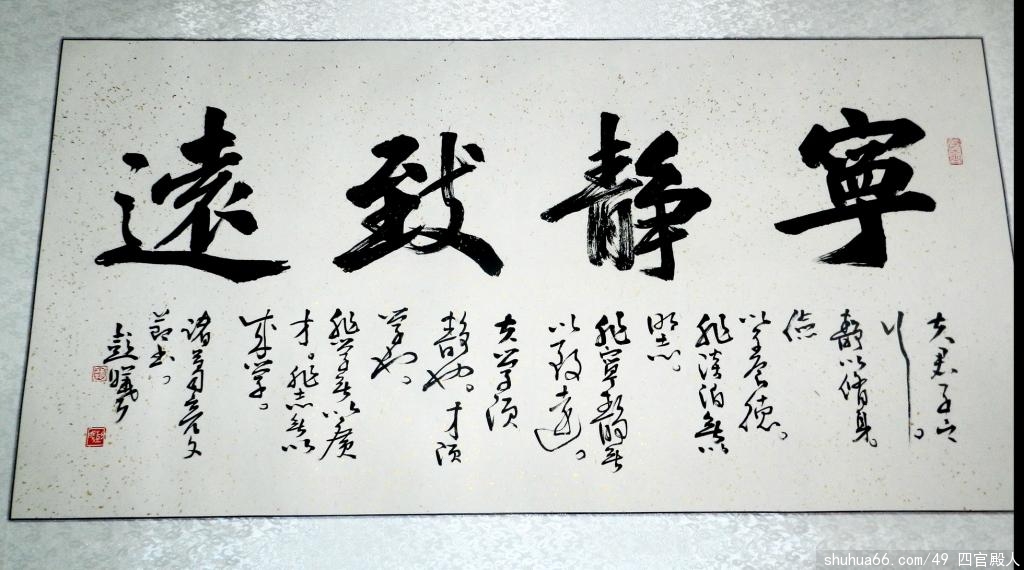 寧靜致遠
夫君子之
行。
靜以修身
儉
以養德。
非淡泊無以
明志。
非寧靜無
以致遠。
夫學須
靜也。才須
學也。
非學無以廣
才。非志無以
成學。
諸葛亮文
節書。
彭曦
shuhua66.com/49 四官殿人